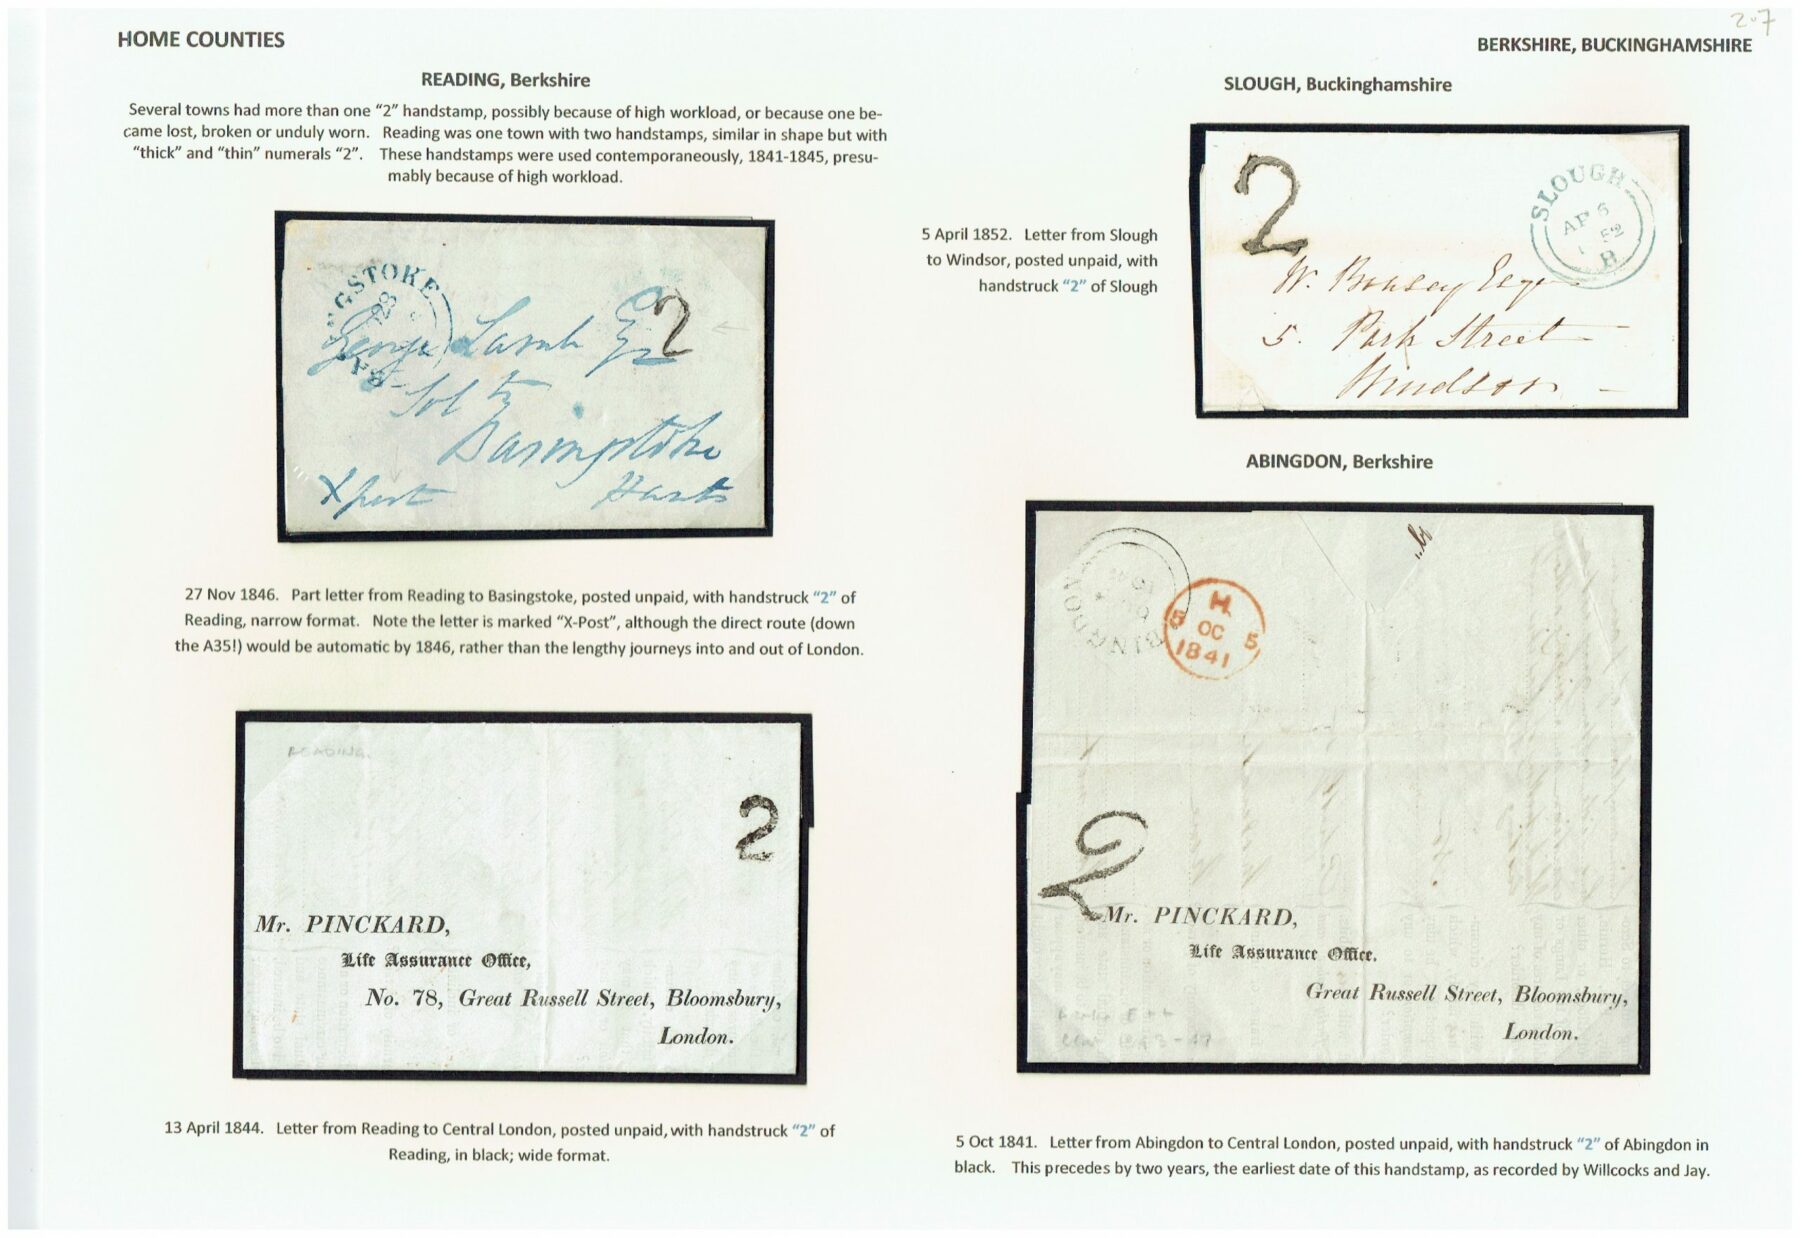 2.7
HOME COUNTIES
BERKSHIRE, BUCKINGHAMSHIRE
READING, Berkshire
Several towns had more than one “2” handstamp, possibly because of high workload, or because one be-
came lost, broken or unduly worn. Reading was one town with two handstamps, similar in shape but with
“thick” and “thin” numerals “2”. These handstamps were used contemporaneously, 1841-1845, presu-
mably because of high workload.
GSTOKE
28
BA
2
George Lamb Esq
Solr
Basingstoke
X post Hants
27 Nov 1846. Part letter from Reading to Basingstoke, posted unpaid, with handstruck “2” of
Reading, narrow format. Note the letter is marked “X-Post”, although the direct route (down
the A35!) would be automatic by 1846, rather than the lengthy journeys into and out of London.
READING.
2
Mr. PINCKARD,
Life Assurance Office,
No. 78, Great Russell Street, Bloomsbury,
London.
13 April 1844. Letter from Reading to Central London, posted unpaid, with handstruck “2” of
Reading, in black; wide format.
SLOUGH, Buckinghamshire
5 April 1852. Letter from Slough
to Windsor, posted unpaid, with
handstruck “2” of Slough
2
SLOUGH
AP 6
52
B
W. Esqr
5. Park Street
Windsor
ABINGDON, Berkshire
BINGDON
H
5 OC 5
1841
2
Mr. PINCKARD,
Life Assurance Office.
Great Russell Street, Bloomsbury,
London.
5 Oct 1841. Letter from Abingdon to Central London, posted unpaid, with handstruck “2” of Abingdon in
black. This precedes by two years, the earliest date of this handstamp, as recorded by Willcocks and Jay.